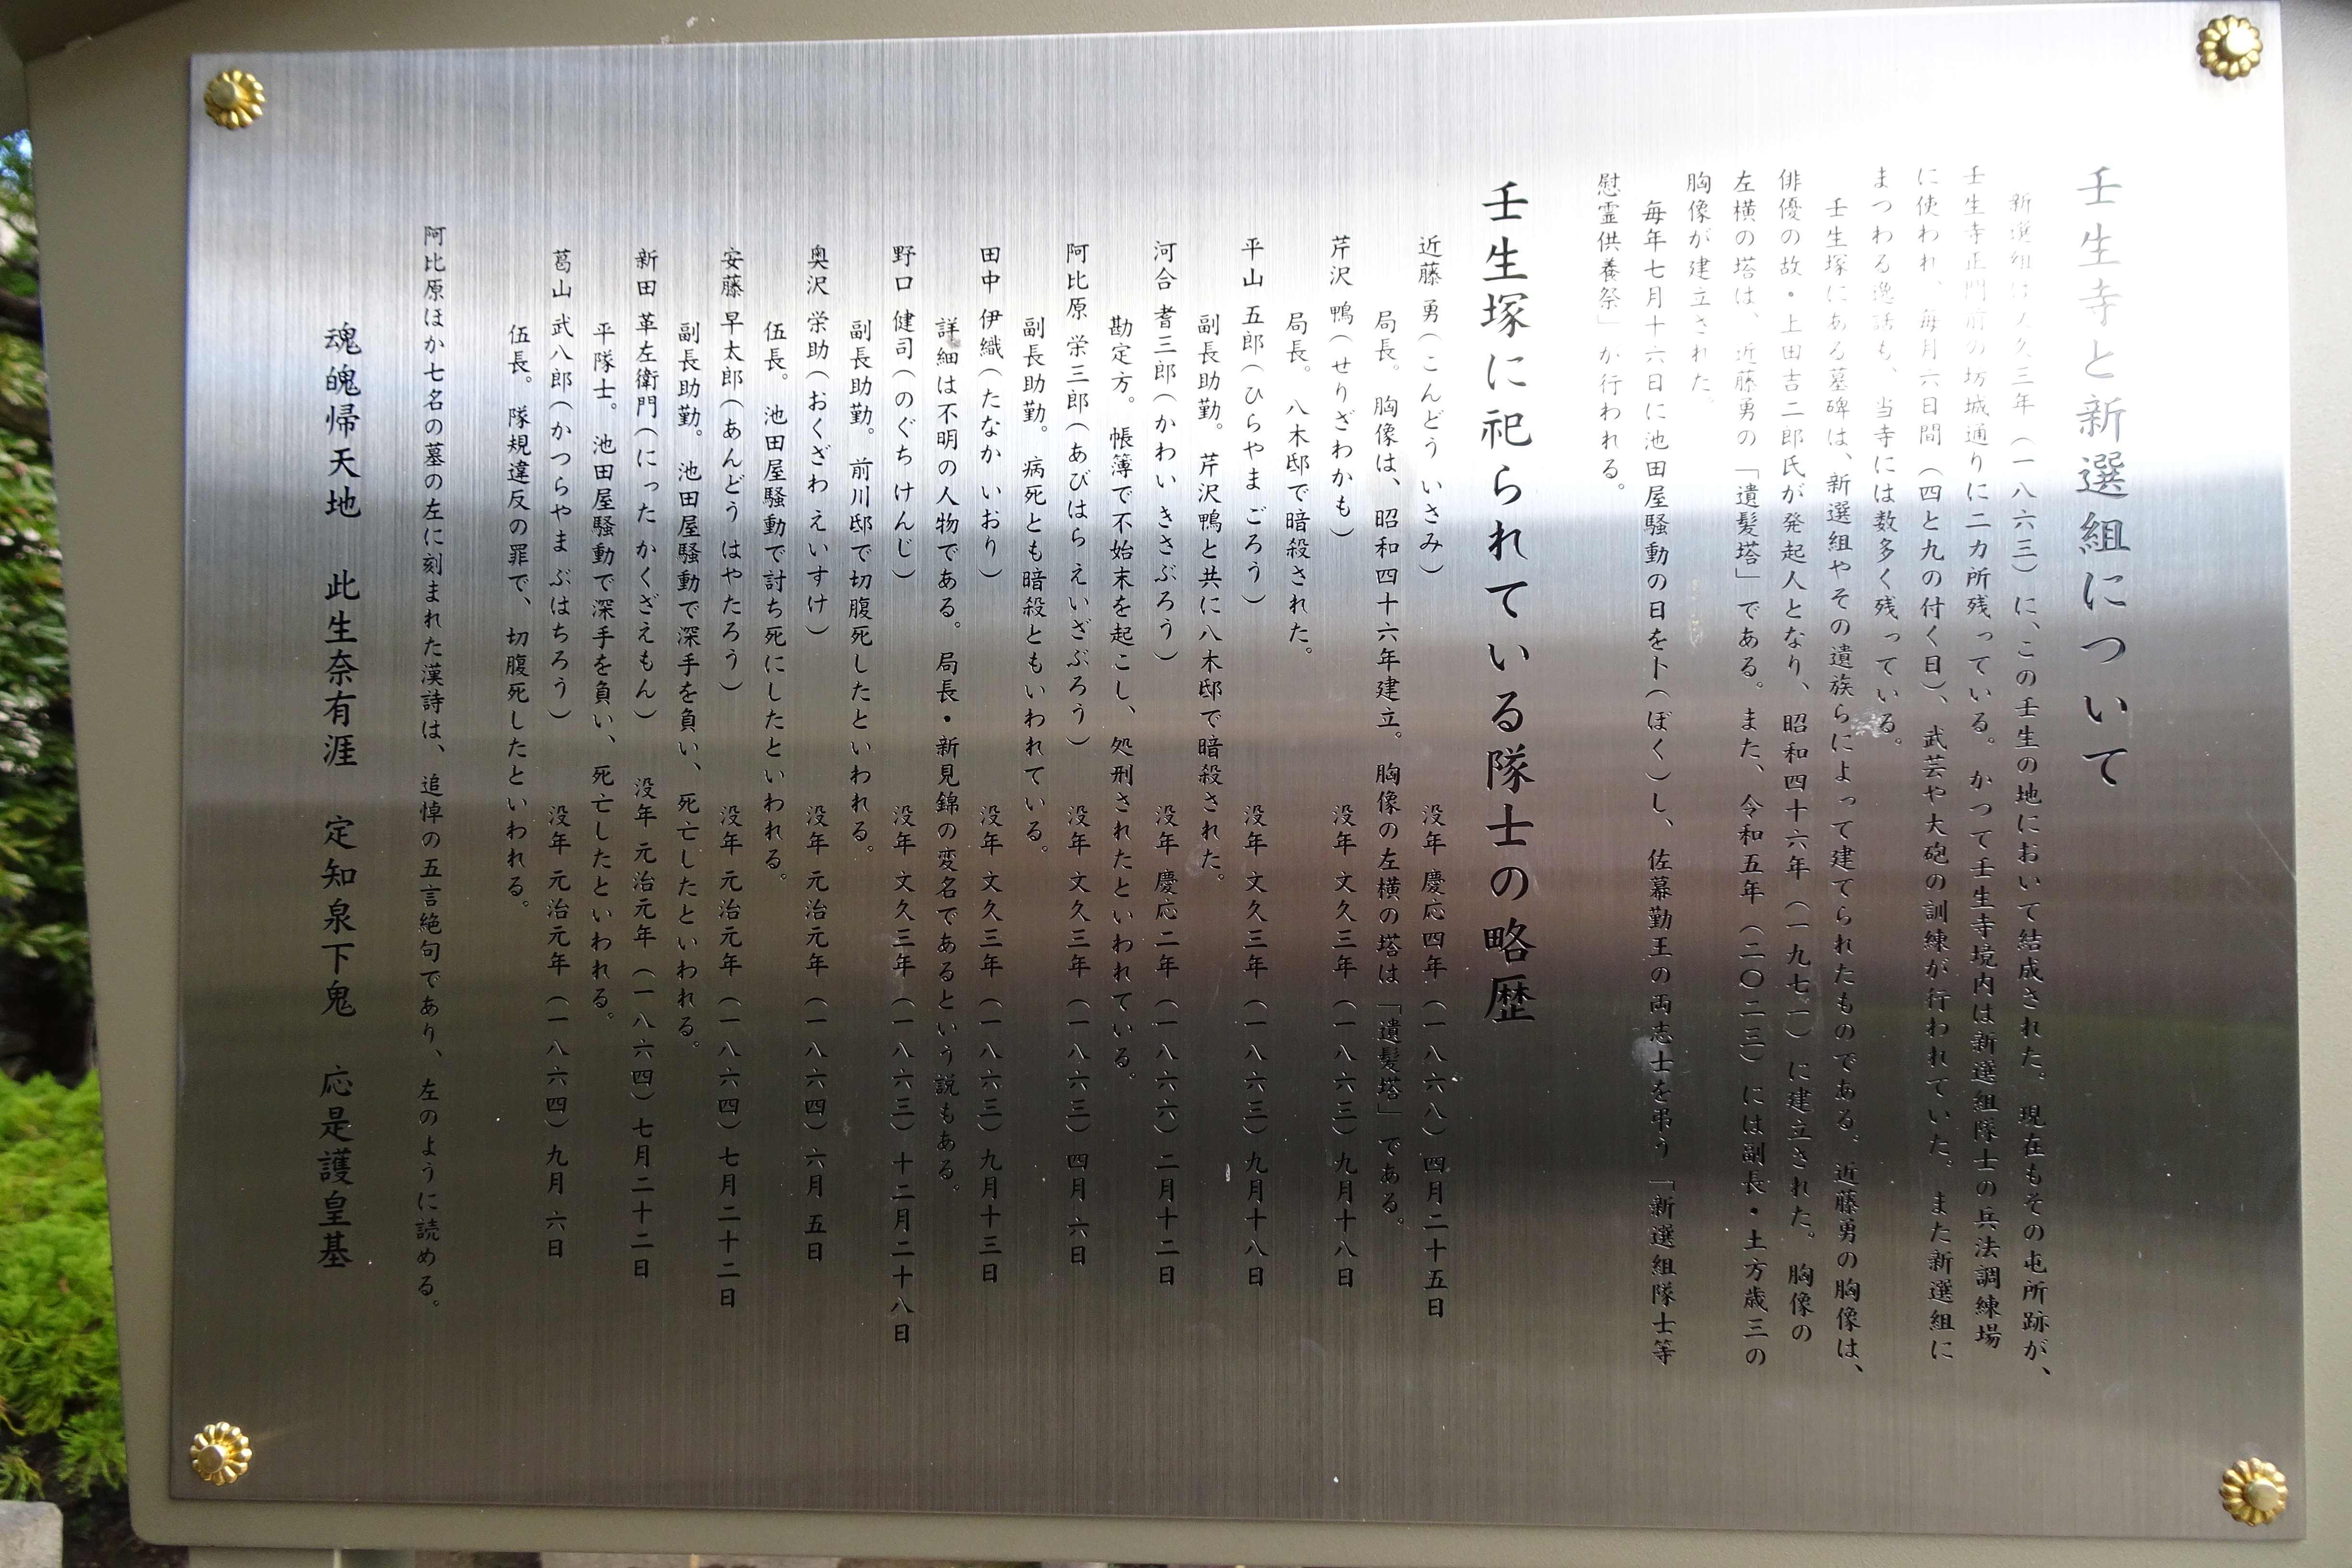 壬生寺と新選組について
新選組は文久三年（一八六三）に、この壬生の地において結成された。現在もその屯所跡が、
壬生寺正門前の坊城通りに二カ所残っている。かつて壬生寺境内は新選組隊士の兵法調練場
に使われ、毎月六日間（四と九の付く日）、武芸や大砲の訓練が行われていた。また新選組に
まつわる逸話も、当寺には数多く残っている。
壬生塚にある墓碑は、新選組やその遺族らによって建てられたものである。近藤勇の胸像は、
俳優の故・上田吉二郎氏が発起人となり、昭和四十六年（一九七一）に建立された。胸像の
左横の塔は、近藤勇の「遺髪塔」である。また、令和五年（二〇二三）には副長・土方歳三の
胸像が建立された。
毎年七月十六日に池田屋騒動の日を卜（ぼく）し、佐幕勤王の両志士を弔う「新選組隊士等
慰霊供養祭」が行われる。
壬生塚に祀られている隊士の略歴
近藤 勇（こんどう いさみ） 没年 慶応四年（一八六八）四月二十五日
局長。胸像は、昭和四十六年建立。胸像の左横の塔は「遺髪塔」である。
芹沢 鴨（せりざわかも） 没年 文久三年（一八六三）九月十八日
局長。八木邸で暗殺された。
平山 五郎（ひらやま ごろう） 没年 文久三年（一八六三）九月十八日
副長助勤。芹沢鴨と共に八木邸で暗殺された。
河合 耆三郎（かわい きさぶろう） 没年 慶応二年（一八六六）二月十二日
勘定方。帳簿で不始末を起こし、処刑されたといわれている。
阿比原 栄三郎（あびはら えいざぶろう） 没年 文久三年（一八六三）四月 六日
副長助勤。病死とも暗殺ともいわれている。
田中 伊織（たなか いおり） 没年 文久三年（一八六三）九月十三日
詳細は不明の人物である。局長・新見錦の変名であるという説もある。
野口 健司（のぐち けんじ） 没年 文久三年（一八六三）十二月二十八日
副長助勤。前川邸で切腹死したといわれる。
奥沢 栄助（おくざわ えいすけ） 没年 元治元年（一八六四）六月 五日
伍長。池田屋騒動で討ち死にしたといわれる。
安藤 早太郎（あんどう はやたろう） 没年 元治元年（一八六四）七月二十二日
副長助勤。池田屋騒動で深手を負い、死亡したといわれる。
新田 革左衛門（にった かくざえもん） 没年 元治元年（一八六四）七月二十二日
平隊士。池田屋騒動で深手を負い、死亡したといわれる。
葛山 武八郎（かつらやま ぶはちろう） 没年 元治元年（一八六四）九月 六日
伍長。隊規違反の罪で、切腹死したといわれる。
阿比原ほか七名の墓の左に刻まれた漢詩は、追悼の五言絶句であり、左のように読める。
魂魄帰天地 此生奈有涯 定知泉下鬼 応是護皇基